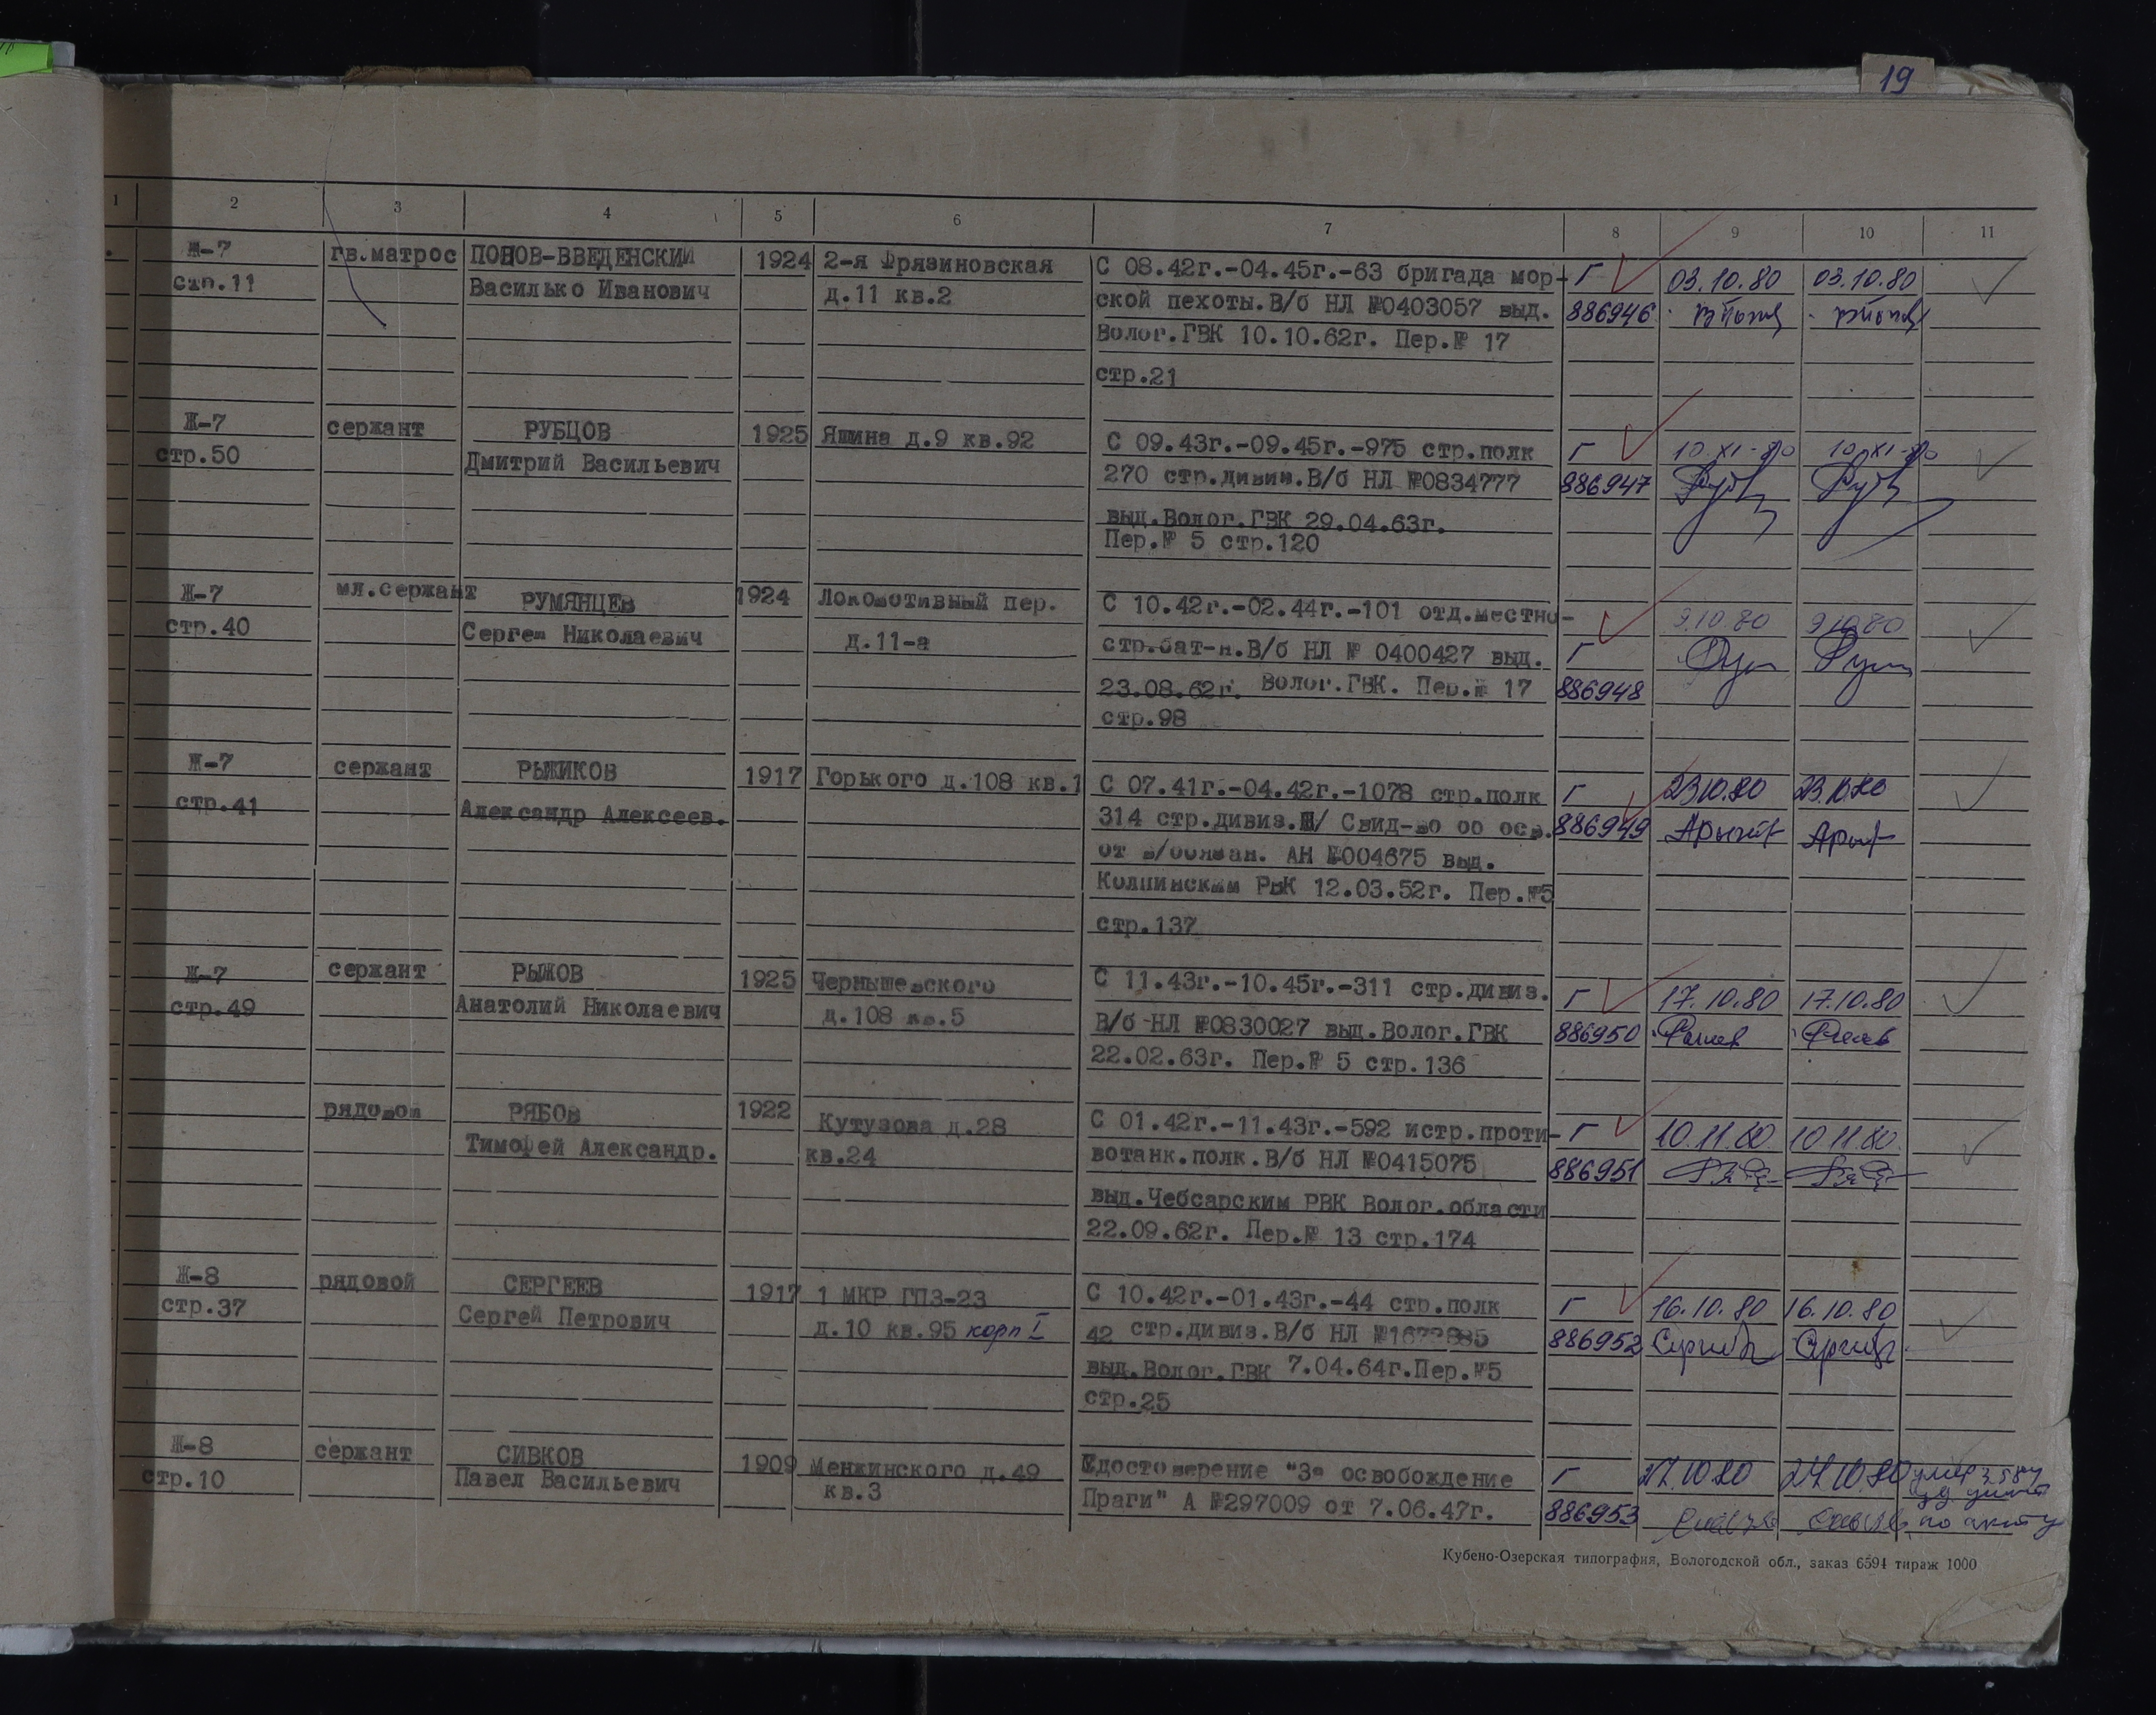 19
1 2 3 4 5 6 7 8 9 10 11
Ж-7 гв.матрос ПОПОВ-ВВЕДЕНСКИЙ 1924 2-я Фрязиновская С 08.42г.-04.45г.-63 бригада мор- Г 03.10.80 03.10.80
стр.11 Василько Иванович д.11 кв.2 ской пехоты.В/б НЛ №0403057 выд. 886946
Волог.ГВК 10.10.62г. Пер.№ 17
стр.21
Ж-7 сержант РУБЦОВ 1925 Яшина д.9 кв.92 С 09.43г.-09.45г.-975 стр.полк Г 10.XI-80 10.XI-80
стр.50 Дмитрий Васильевич 270 стр.дивиз.В/б НЛ №0834777 886947
выд.Волог.ГВК 29.04.63г.
Пер.№ 5 стр.120
Ж-7 мл.сержант РУМЯНЦЕВ 1924 Локомотивный пер. С 10.42г.-02.44г.-101 отд.местно- 9.10.80 9.10.80
стр.40 Сергей Николаевич д.11-а стр.бат-н.В/б НЛ № 0400427 выд. Г
23.08.62г. Волог.ГВК. Пер.№ 17 886948
стр.98
Ж-7 сержант РЫЖИКОВ 1917 Горького д.108 кв.1 С 07.41г.-04.42г.-1078 стр.полк Г 23.10.80 23.10.80
стр.41 Александр Алексеев. 314 стр.дивиз. Свид-во об осв. 886949
от в/обязан. АН №004675 выд.
Колпинским РВК 12.03.52г. Пер.№5
стр.137
Ж-7 сержант РЫЖОВ 1925 Чернышевского С 11.43г.-10.45г.-311 стр.дивиз. Г 17.10.80 17.10.80
стр.49 Анатолий Николаевич д.108 кв.5 В/б НЛ №0830027 выд.Волог.ГВК 886950
22.02.63г. Пер.№ 5 стр.136
рядовой РЯБОВ 1922 Кутузова д.28 С 01.42г.-11.43г.-592 истр.проти- Г 10.11.80 10.11.80.
Тимофей Александр. кв.24 вотанк.полк.В/б НЛ №0415075 886951
выд.Чебсарским РВК Волог.области
22.09.62г. Пер.№ 13 стр.174
Ж-8 рядовой СЕРГЕЕВ 1917 1 МКР ГПЗ-23 С 10.42г.-01.43г.-44 стр.полк Г 16.10.80 16.10.80
стр.37 Сергей Петрович д.10 кв.95 корп I 42 стр.дивиз.В/б НЛ 886952
выд.Волог.ГВК 7.04.64г.Пер.№5
стр.25
Ж-8 сержант СИВКОВ 1909 Менжинского д.49 Удостоверение "За освобождение Г 27.10.80 27.10.80
стр.10 Павел Васильевич кв.3 Праги" А №297009 от 7.06.47г. 886953 по акту
Кубено-Озерская типография, Вологодской обл., заказ 6594 тираж 1000